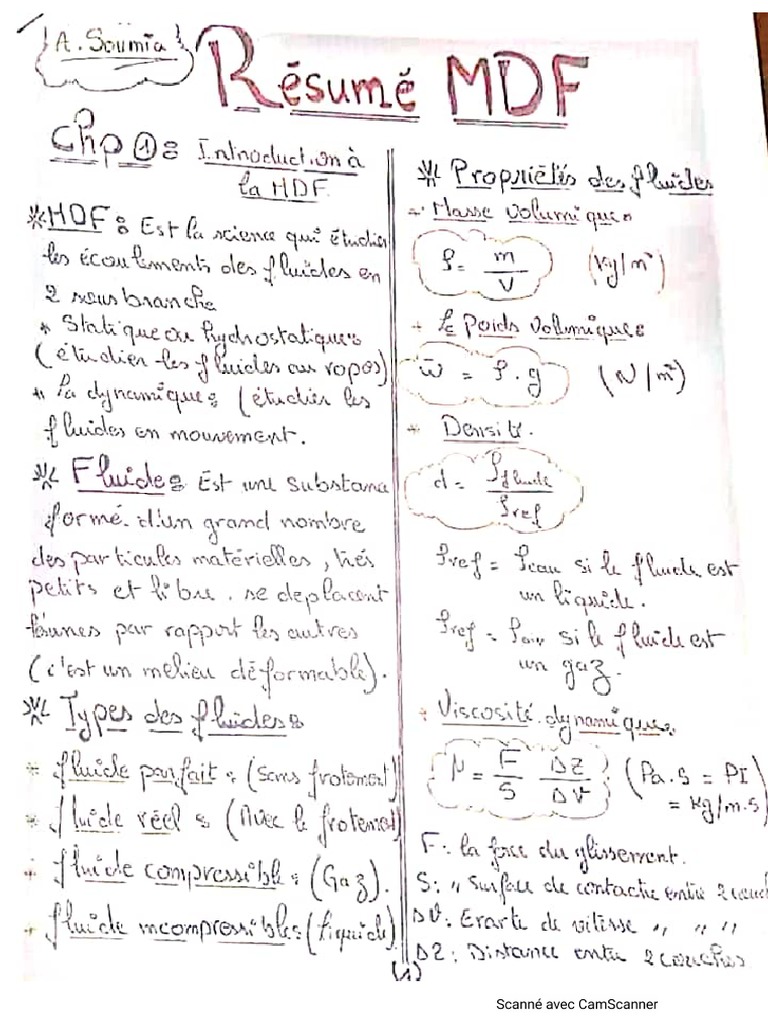 A. Soumia
Résumé MDF
Chp ①: Introduction à
la MDF.
* MDF: Est la science qui étudier
les écoulements des fluides en
2 sous branche
* Statique ou hydrostatique:
(étudier les fluides au ropos)
* La dynamique: (étudier les
fluides en mouvement.
* Fluide: Est une substance
formé d'un grand nombre
des particules matérielles, très
petits et libre. se deplacent
les unes par rapport les autres
(c'est un melieu déformable).
* Types des fluides:
+ fluide parfait: (sans frotement)
* fluide réel: (Avec le frotement)
+ fluide compressible: (Gaz).
+ fluide incompressible: (liquide)
* Propriétés des fluides
- Masse volumique:
ρ = m / V (kg/m³)
+ Le Poids volumique:
w̄ = ρ . g (N/m³)
+ Densité.
d = ρfluide / ρref
ρref = ρeau si le fluide est
un liquide.
ρref = ρair si le fluide est
un gaz.
+ Viscosité dynamique:
μ = F/S ΔZ/ΔV (Pa.S = PI)
= kg/m.s
F: la force du glissement.
S: " Surface de contacte entre 2 couch
ΔV: Erarte de vitesse " " "
ΔZ: Distance entre 2 couches
(1)
Scanné avec CamScanner